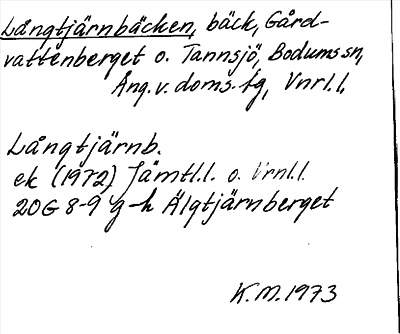 Långtjärnbäcken, bäck, Gård-
vattenberget o. Tannsjö, Bodums sn,
Ång. v. doms. tg, Vnrl. l.
Långtjärnb.
ek (1972) Jämtl.l. o. Vrnl.l.
20G 8-9 g-h Älgtjärnberget
K.M. 1973